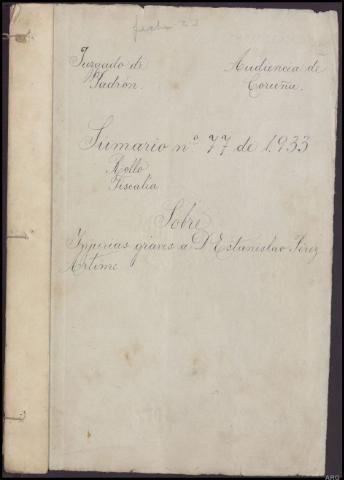 Juzgado de Padrón.
Audiencia de Coruña.
Sumario nº 77 de 1.933
Rollo
Fiscalía
Sobre
Injurias graves a D Estanislao Pérez
Artime
ARQ